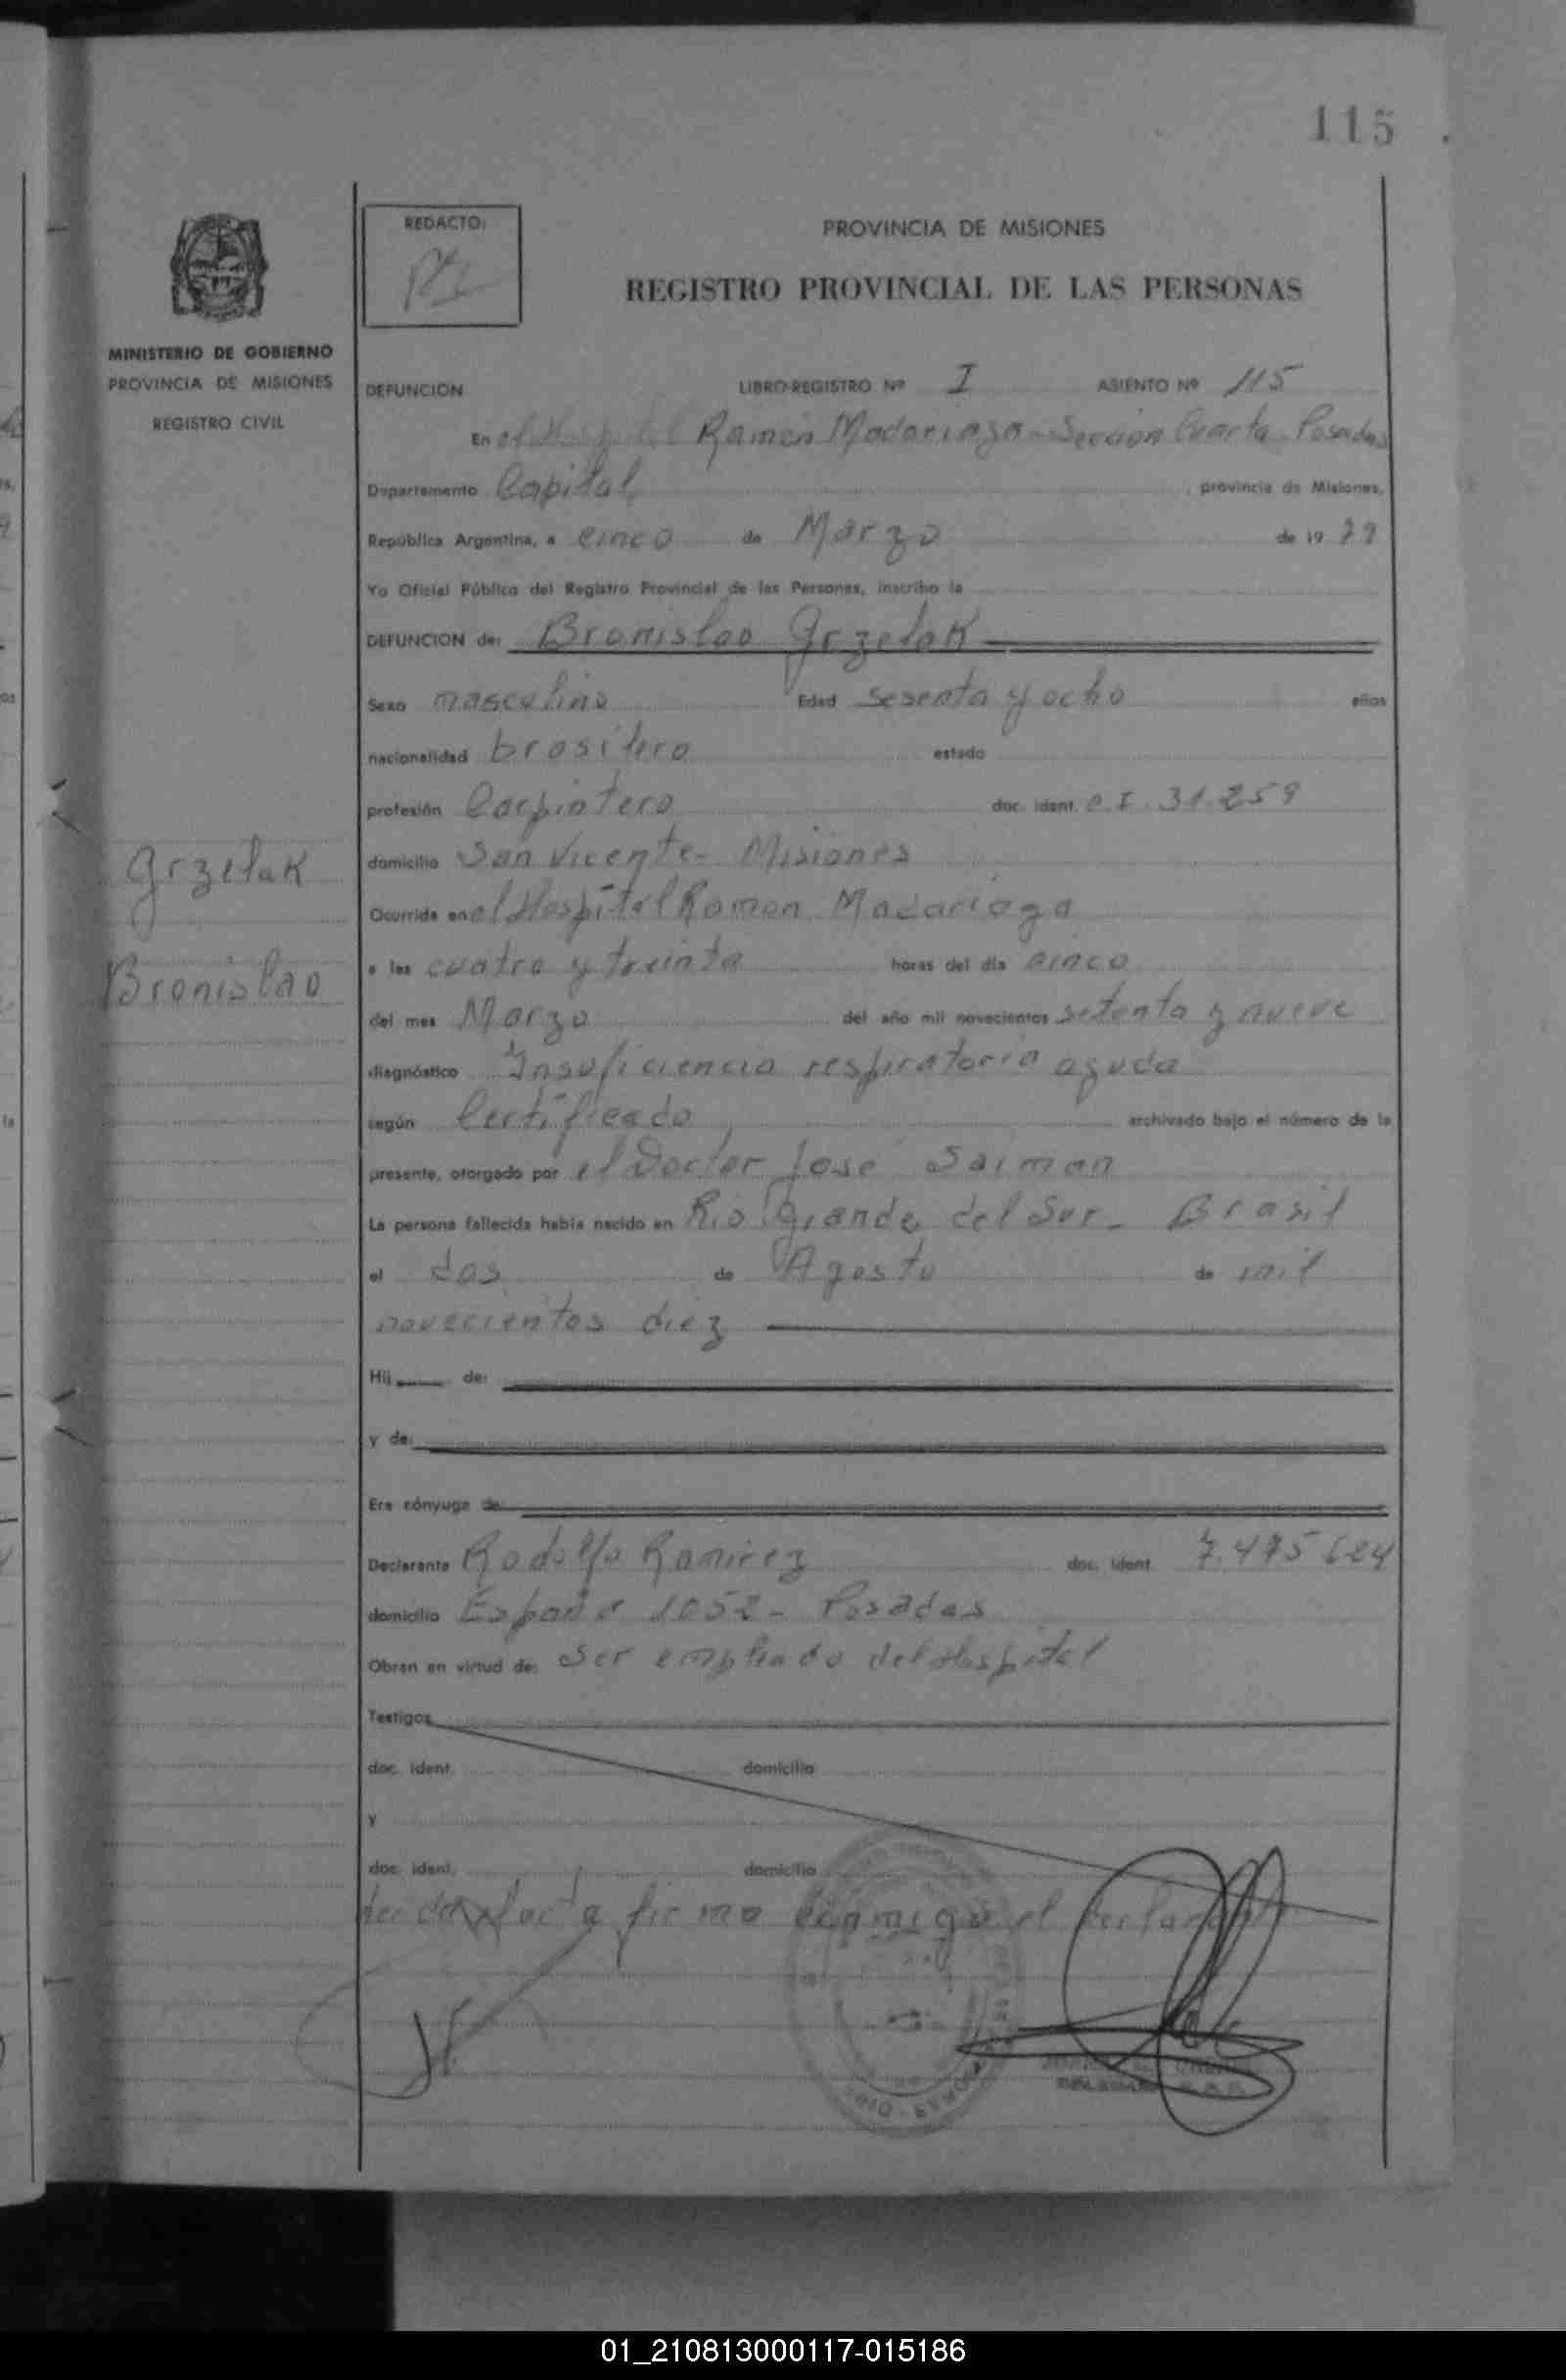 115
REDACTO:
PROVINCIA DE MISIONES
REGISTRO PROVINCIAL DE LAS PERSONAS
MINISTERIO DE GOBIERNO
PROVINCIA DE MISIONES
REGISTRO CIVIL
DEFUNCION LIBRO-REGISTRO Nº I ASIENTO Nº 115
En el Hospital Ramón Madariaga - Sección Cuarta - Posadas
Departamento Capital, provincia de Misiones,
República Argentina, a cinco de Marzo de 1979
Yo Oficial Público del Registro Provincial de las Personas, inscribo la
DEFUNCION de: Bronislao Grzelak
Sexo masculino Edad sesenta y ocho años
nacionalidad brasilero estado
profesión Carpintero doc. ident. C.I. 31.259
Grzelak
Bronislao
domicilio San Vicente - Misiones
Ocurrida en el Hospital Ramon Madariaga
a las cuatro y treinta horas del día cinco
del mes Marzo del año mil novecientos setenta y nueve
diagnóstico Insuficiencia respiratoria aguda
según Certificado archivado bajo el número de la
presente, otorgado por el Doctor José Saiman
La persona fallecida había nacido en Rio Grande del Sur - Brasil
el dos de Agosto de mil
novecientos diez
Hij de:
y de:
Era cónyuge de:
Declarante Rodolfo Ramirez doc. ident. 7.475.624
domicilio España 1052 - Posadas
Obran en virtud de: ser empleado del Hospital
Testigos
doc. ident. domicilio
y
doc. ident. domicilio
firma conmigo el declarante
01_210813000117-015186